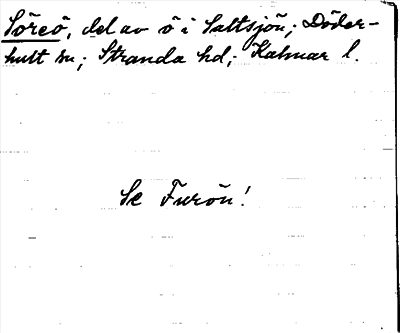 Söreö, del av ö i Saltsjön; Döder-
hult sn; Stranda hd; Kalmar l.
Se Furön!